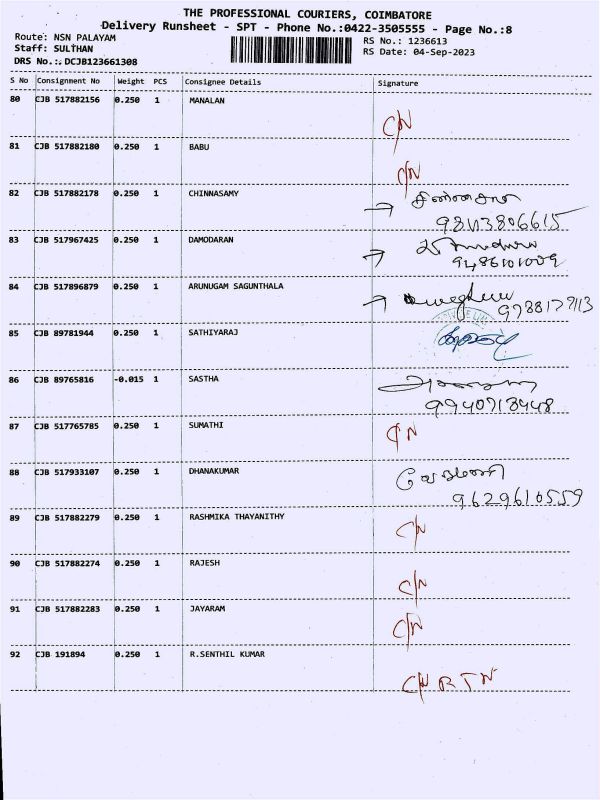 THE PROFESSIONAL COURIERS, COIMBATORE
Delivery Runsheet - SPT - Phone No.:0422-3505555 - Page No.:8
Route: NSN PALAYAM RS No.: 1236613
Staff: SULTHAN RS Date: 04-Sep-2023
DRS No.:.DCJB123661308
S No Consignment No Weight PCS Consignee Details Signature
80 CJB 517882156 0.250 1 MANALAN C/N
81 CJB 517882180 0.250 1 BABU C/N
82 CJB 517882178 0.250 1 CHINNASAMY
83 CJB 517967425 0.250 1 DAMODARAN
9486101009
84 CJB 517896879 0.250 1 ARUNUGAM SAGUNTHALA
85 CJB 89781944 0.250 1 SATHIYARAJ
86 CJB 89765816 -0.015 1 SASTHA
9940713448
87 CJB 517765785 0.250 1 SUMATHI C/N
88 CJB 517933107 0.250 1 DHANAKUMAR
9629610559
89 CJB 517882279 0.250 1 RASHMIKA THAYANITHY C/N
90 CJB 517882274 0.250 1 RAJESH C/N
91 CJB 517882283 0.250 1 JAYARAM C/N
92 CJB 191894 0.250 1 R.SENTHIL KUMAR C/N RTN